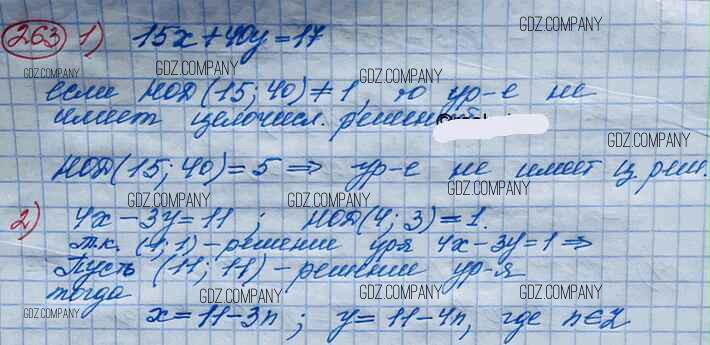 263 1) 15x+40y=17
если НОД(15;40)≠1, то ур-е не
имеет целочисл. решений
НОД(15;40)=5 ⇒ ур-е не имеет ц. реш.
2) 4x-3y=11; НОД(4;3)=1.
т.к. (1;1)-решение ур-я 4x-3y=1 ⇒
Пусть (11;11)-решение ур-я
тогда
x=11-3n; y=11-4n, где n∈Z
GDZ.COMPANY
GDZ.COMPANY
GDZ.COMPANY
GDZ.COMPANY
GDZ.COMPANY
GDZ.COMPANY
GDZ.COMPANY
GDZ.COMPANY
GDZ.COMPANY
GDZ.COMPANY
GDZ.COMPANY
GDZ.COMPANY
GDZ.COMPANY